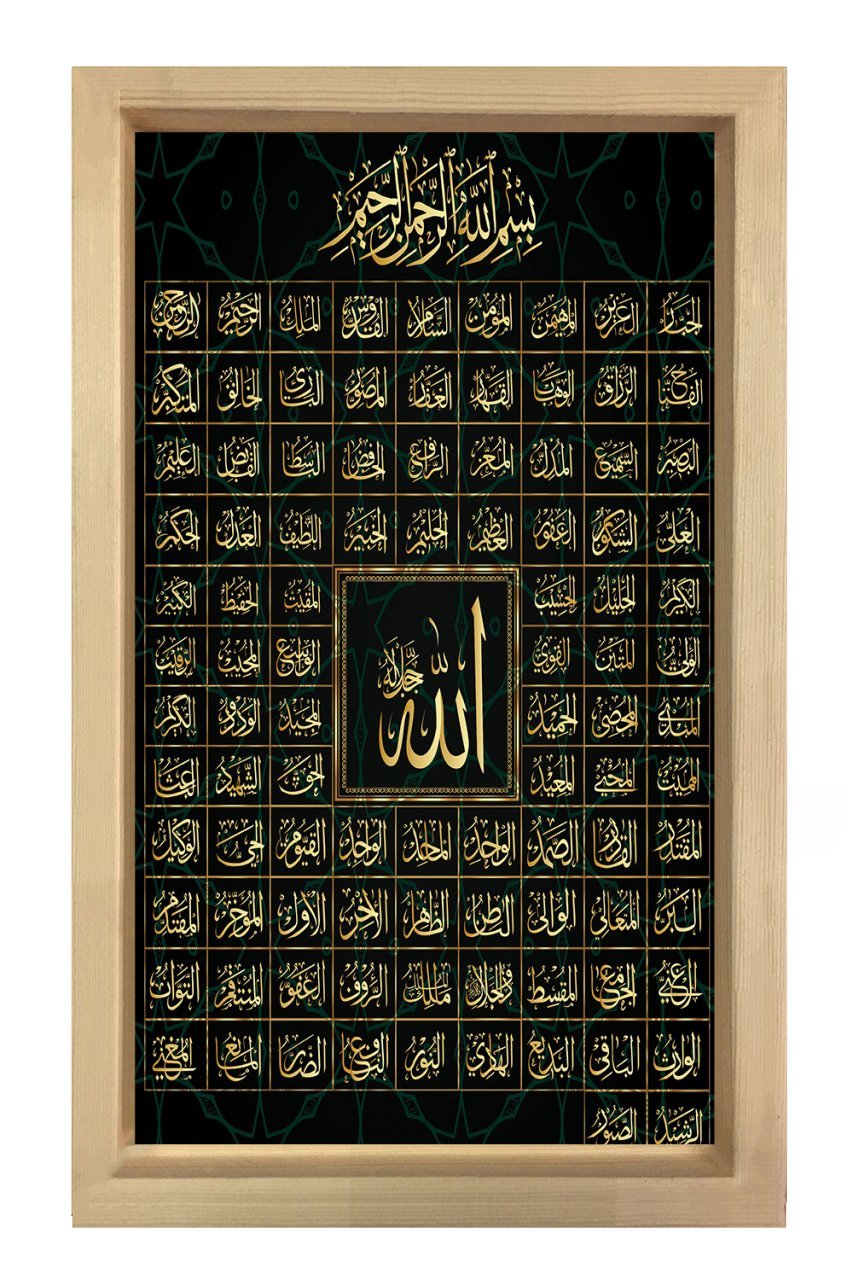 بسم الله الرحمن الرحيم
الرحمن الرحيم الملك القدوس السلام المؤمن المهيمن العزيز الجبار
المتكبر الخالق البارئ المصور الغفار القهار الوهاب الرزاق الفتاح
العليم القابض الباسط الخافض الرافع المعز المذل السميع البصير
الحكم العدل اللطيف الخبير الحليم العظيم الغفور الشكور العلي
الكبير الحفيظ المقيت الحسيب الجليل الكريم
الرقيب المجيب الواسع القوي المتين الولي
الله جل جلاله
الكريم الودود المجيد الحميد المحصي المبدئ
الباعث الشهيد الحق المعيد المحيي المميت
الوكيل الحي القيوم الواجد الماجد الواحد الصمد القادر المقتدر
المقدم المؤخر الأول الآخر الظاهر الباطن الوالي المتعالي البر
التواب المنتقم العفو الرؤوف مالك الملك ذو الجلال والإكرام المقسط الجامع الغني
المغني المانع الضار النافع النور الهادي البديع الباقي الوارث
الرشيد الصبور